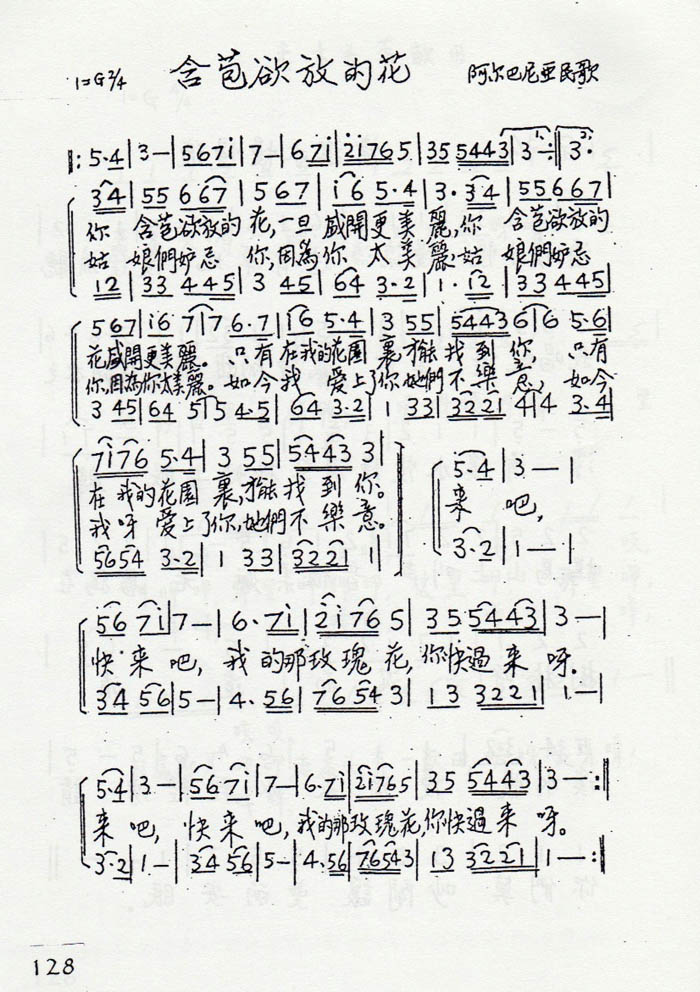 1=G 2/4 含苞欲放的花 阿尔巴尼亚民歌
‖: 5·4 | 3 — | 5 6 7 i | 7 — | 6 7 i | 2 i 7 6 5 | 3 5 5 4 4 3 | 3 — :‖ 3·
3 4 | 5 5 6 6 7 | 5 6 7 | i 6 5·4 | 3· 3 4 | 5 5 6 6 7 |
你 含苞欲放的花,一旦 盛開更美麗,你 含苞欲放的
姑 娘們妒忌 你,因為你 太美麗·姑 娘們妒忌
1 2 | 3 3 4 4 5 | 3 4 5 | 6 4 3·2 | 1· 1 2 | 3 3 4 4 5 |
5 6 7 | i 6 7 | 7 6·7 | i 6 5·4 | 3 5 5 | 5 4 4 3 6 | 6 5·6 |
花盛開更美麗。只有在我的花園裏,才能找到你, 只有
你,因為你太美麗。如今我 愛上了你,她們不樂意, 如今
3 4 5 | 6 4 5 | 5 4·5 | 6 4 3·2 | 1 3 3 | 3 2 2 1 4 | 4 3·4 |
7 i 7 6 5·4 | 3 5 5 | 5 4 4 3 3 |
在我的花園裏,才能找到你。
我呀愛上了你,她們不樂意。
5 6 5 4 3·2 | 1 3 3 | 3 2 2 1 1 |
5·4 | 3 — |
来 吧,
3·2 | 1 — |
5 6 7 i | 7 — | 6·7 i | 2 i 7 6 5 | 3 5 5 4 4 3 | 3 — |
快来吧, 我的那玫瑰花,你快過来呀。
3 4 5 6 | 5 — | 4·5 6 | 7 6 5 4 3 | 1 3 3 2 2 1 | 1 — |
5·4 | 3 — | 5 6 7 i | 7 — | 6·7 i | 2 i 7 6 5 | 3 5 5 4 4 3 | 3 — :‖
来吧, 快来吧,我的那玫瑰花,你快過来呀。
3·2 | 1 — | 3 4 5 6 | 5 — | 4·5 6 | 7 6 5 4 3 | 1 3 3 2 2 1 | 1 — :‖
128